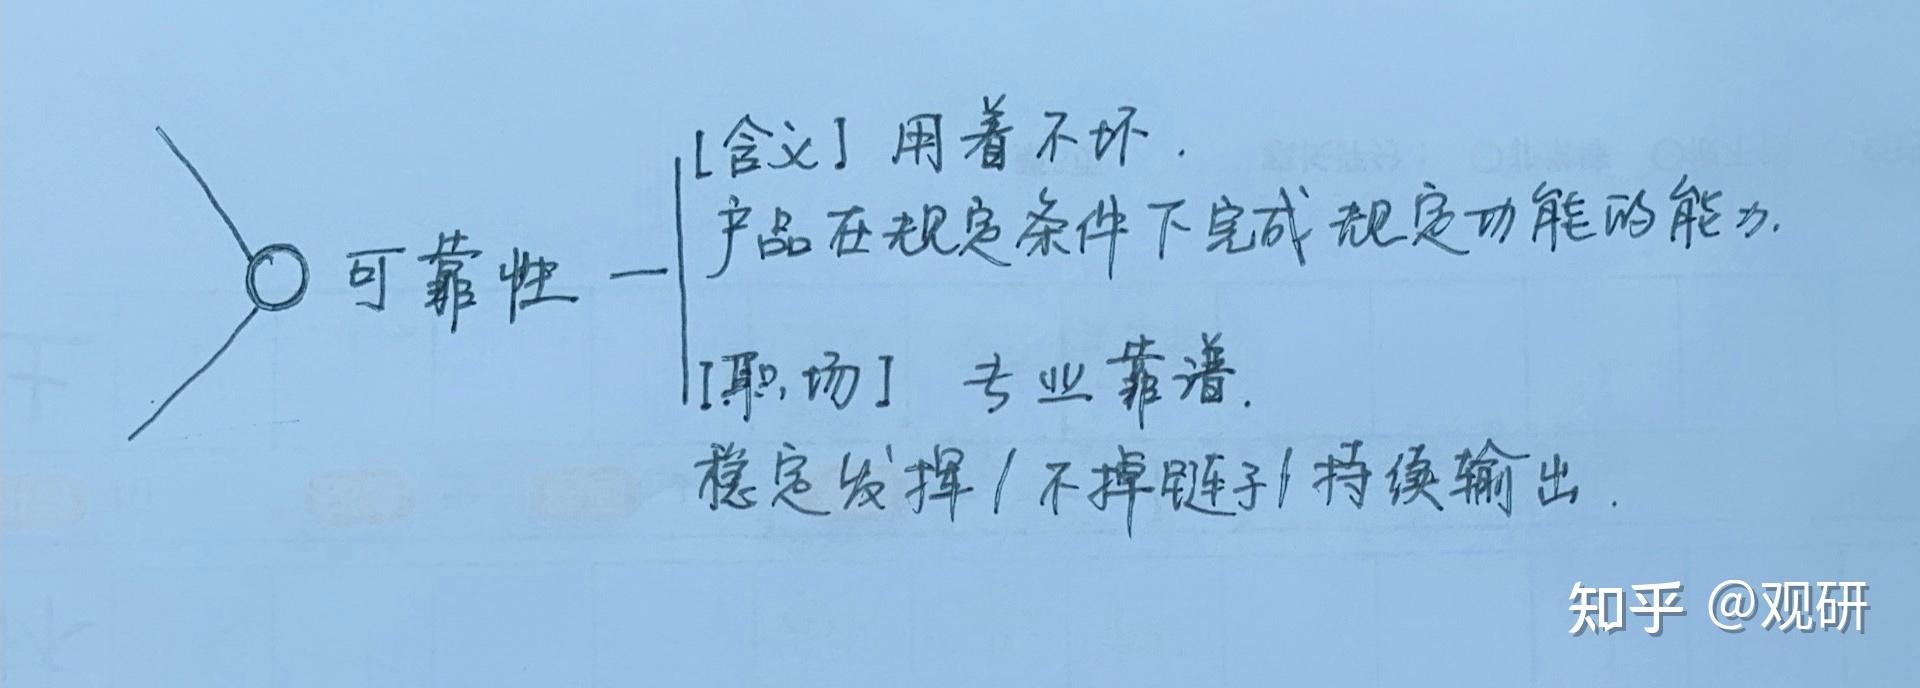 [含义] 用着不坏.
产品在规定条件下完成规定功能的能力.
可靠性
[职场] 专业靠谱.
稳定发挥/不掉链子/持续输出.
知乎 @观研